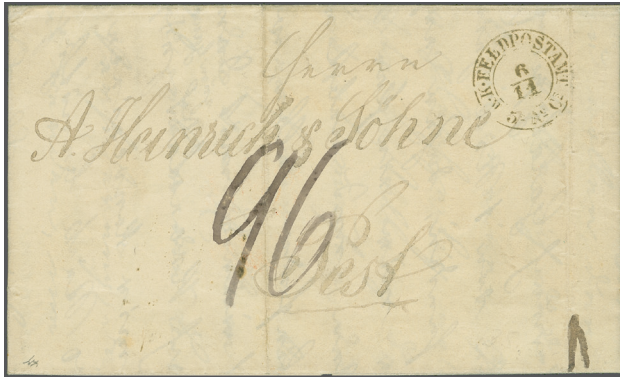 Herrn
K.K. FELDPOSTAMT
6
11
A. Heinrich & Söhne
96
Pest